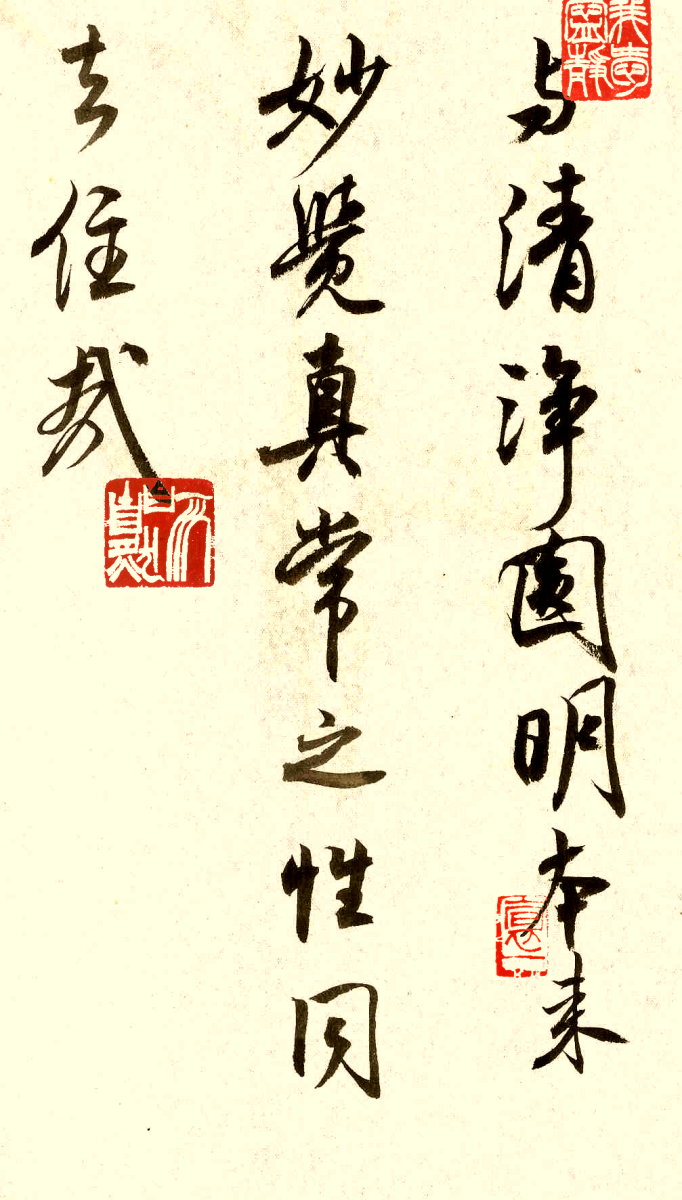 与清净圆明本来
妙觉真常之性同
去住哉